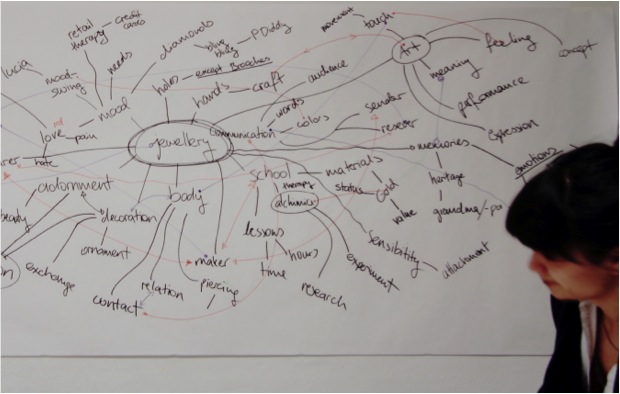 movement
touch
retail
therapy
credit
cards
diamonds
bling
bling
P Diddy
Art
feeling
concept
lucia
mood-
swing
needs
holes
except Brooches
audience
meaning
mood
hands
craft
words
sender
performance
love
pain
communication
colors
expression
hate
jewellery
memories
emotions
school
materials
heritage
adornment
body
therapy
status
gold
grandma
decoration
alchemics
value
lessons
sensibility
ornament
hours
attachment
exchange
maker
time
experiment
relation
piercing
research
contact